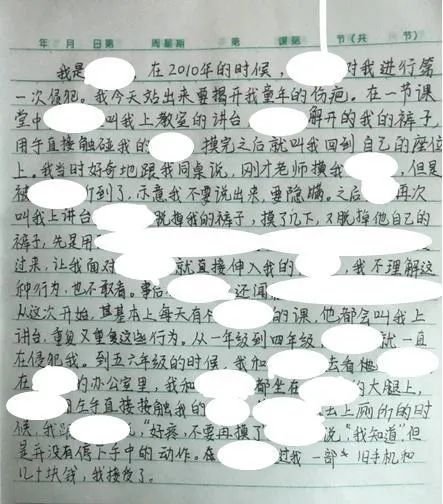 年 月 日第 周星期 第 课第 节(共 节)
我是 ，在2010年的时候， 对我进行第
一次侵犯。我今天站出来要揭开我童年的伤疤。在一节课
堂中 叫我上教室的讲台 解开的我的裤子，
用手直接触碰我的 摸完之后就叫我回到自己的座位
上。我当时好奇地跟我同桌说，刚才老师摸我 ，但是
被 听到了，示意我不要说出来，要隐瞒。之后 再次
叫我上讲台 脱掉我的裤子，摸了几下，又脱掉他自己的
裤子，先是用
过来，让我面对 就直接伸入我的 ，我不理解这
种行为，也不敢看。事后 还闻
从这次开始，其基本上每天有 的课，他都会叫我上
讲台，重复又重复这些行为。从一年级到四年级 就一直
在侵犯我。到五六年级的时候，我和 去看
在 的办公室里，我和 都坐在 的大腿上，
用左手直接接触我的 出上厕所的时
候，我 "好疼，不要再摸了 说："我知道"但
是并没有停下手中的动作。在 过我一部 旧手机和
几十块钱，我接受了。